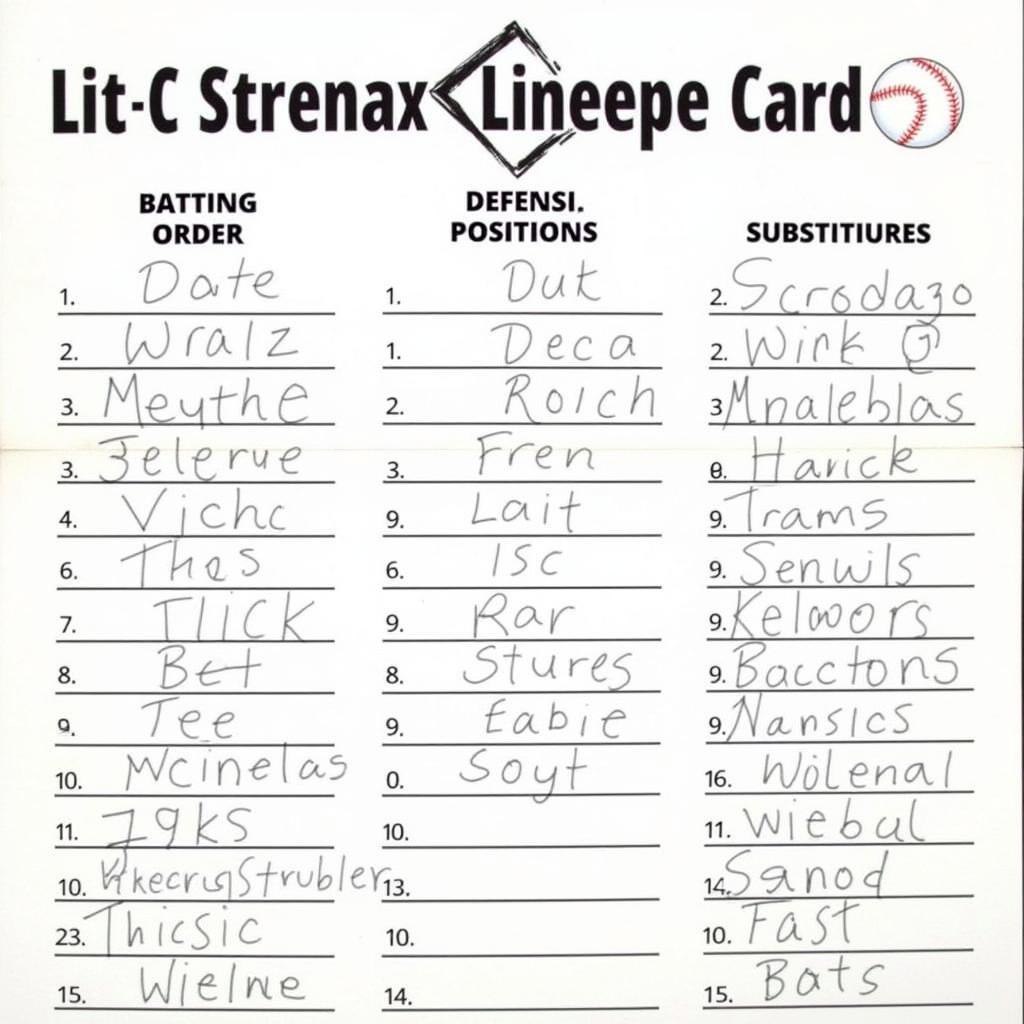 Lit-C Strenax Lineepe Card
BATTING ORDER
1. Date
2. Wralz
3. Meythe
3. Jelerue
4. Vichc
6. Thes
7. TLICK
8. Bet
9. Tee
10. Wcinelas
11. J9ks
10. Strubler
23. Thicsic
15. Wielne
DEFENSI. POSITIONS
1. Dut
1. Deca
2. Roich
3. Fren
9. Lait
6. Isc
9. Rar
8. Stures
9. Eabie
0. Soyt
10.
13.
10.
14.
SUBSTITIURES
2. Scrodazo
2. Wirk
3 Mnaleblas
8. Havick
9. Trams
9. Senwils
9. Kelwoors
9. Bacctons
9. Nansics
16. Wolenal
11. Wiebul
14. Sanod
10. Fast
15. Bats